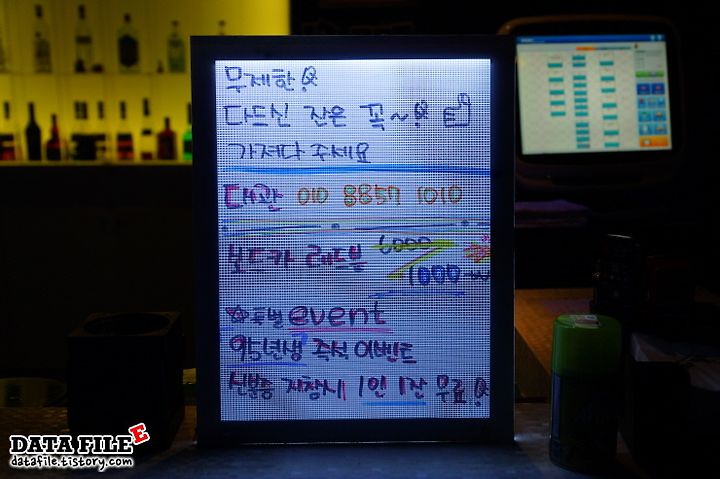 무제한!
다드신 잔은 꼭~!
가져다 주세요
대관 010 8857 1010
보드카 레드불 6000
1000
☆특별 event
95년생 즉석 이벤트
신분증 지참시 1인 1잔 무료!
DATA FILE
datafile.tistory.com